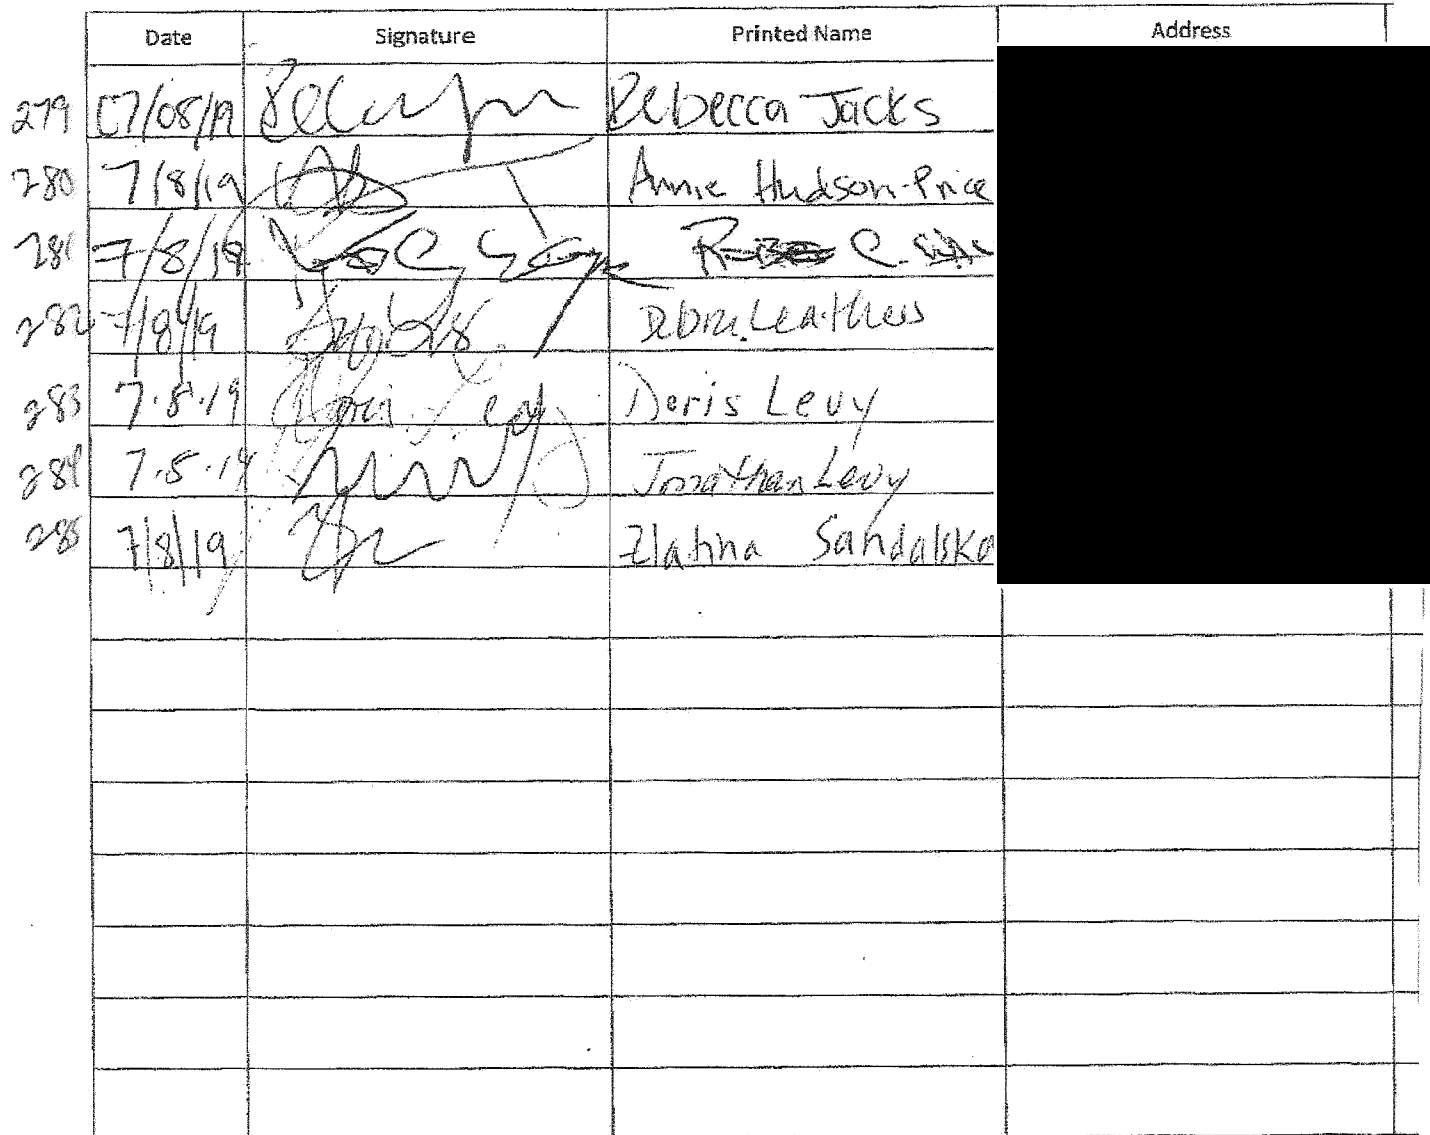 Date Signature Printed Name Address
279 07/08/19 Rebecca Jacks
280 7/8/19 Annie Hudson-Price
281 7/8/19 C.
282 7/8/19 Leathers
283 7.5.19 Doris Levy Doris Levy
284 7.5.19 Jonathan Levy
285 7/8/19 Zlatina Sandalska